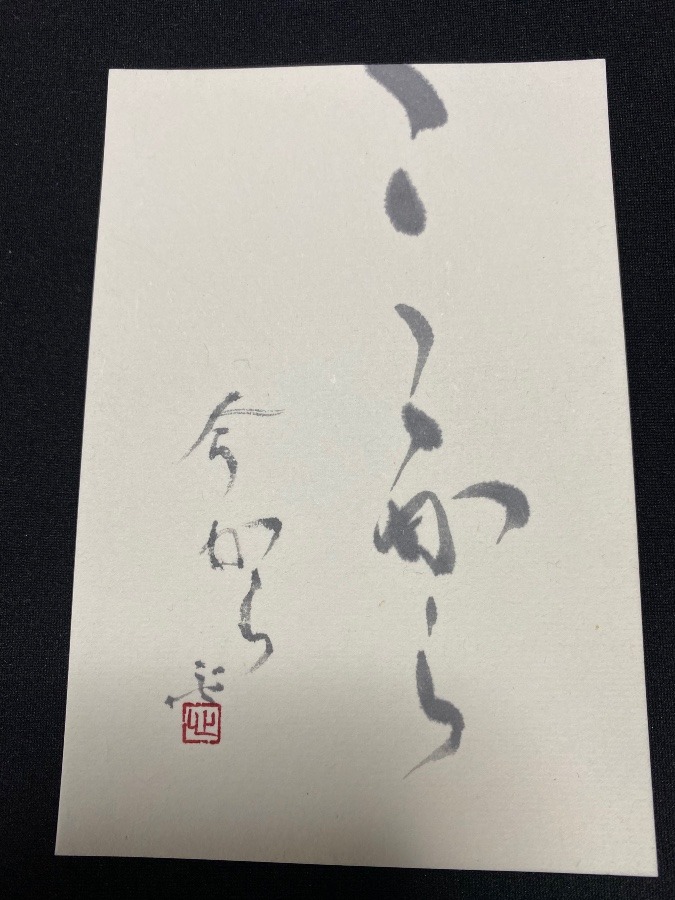 ここから
今から